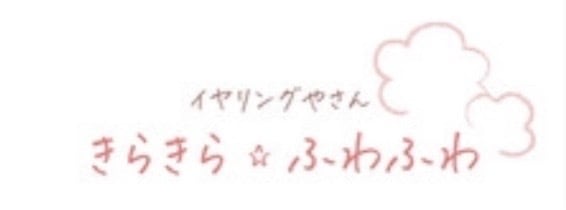 イヤリングやさん
きらきら☆ふわふわ